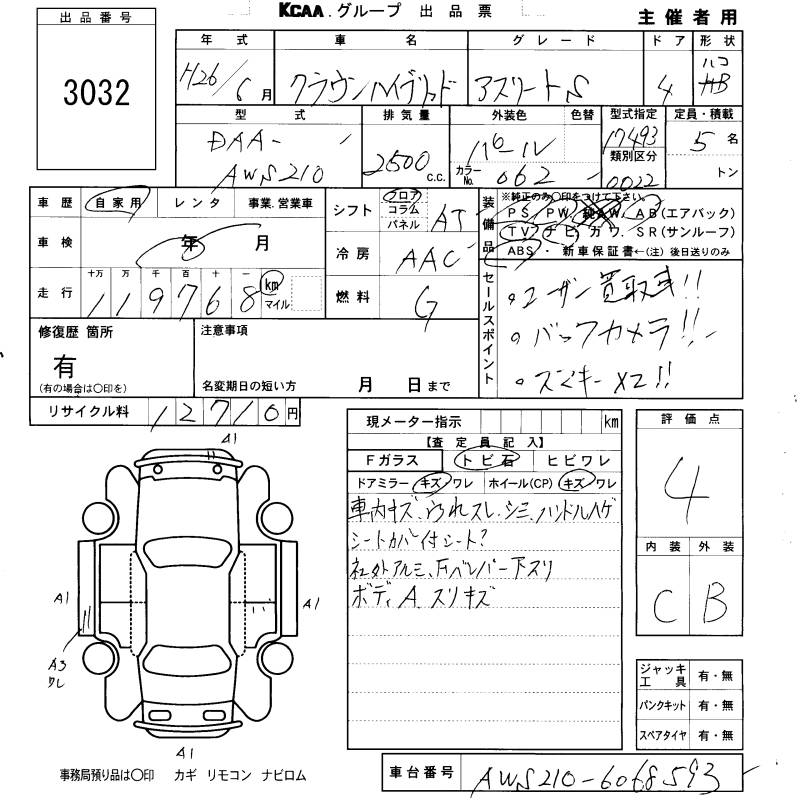 KCAA.グループ 出品票
主催者用
出品番号
3032
年式 車名 グレード ドア 形状
H26/6月 クラウンハイブリッド アスリートS 4 ハコ HB
型式 排気量 外装色 色替 型式指定 定員・積載
DAA- AWS210 2500 C.C. パール カラーNo. 062 17493 5名
類別区分
0022 トン
車歴 自家用 レンタ 事業.営業車
シフト フロア コラム パネル AT
装備品 ※純正のみ〇印をつけて下さい。
PS, PW, 純AW, AB(エアバック)
TV, ナビ, カワ, SR(サンルーフ)
ABS・新車保証書←(注) 後日送りのみ
車検 年 月
冷房 AAC
走行 十万 万 千 百 十 一
119768 km マイル
燃料 G
セールスポイント
。ユーザー買取車!!
。バックカメラ!!
。スマキー×2!!
修復歴 箇所
有
(有の場合は〇印を)
注意事項
名変期日の短い方 月 日まで
リサイクル料 12710円
現メーター指示 km
【査定員記入】
Fガラス トビ石 ヒビワレ
ドアミラー キズ ワレ ホイール(CP) キズ ワレ
車内キズ、うちはスレ、シミ、ハンドルハゲ
シートカバー付シート?
社外アルミ、Fバンパー下スリ
ボディA スリキズ
評価点
4
内装 外装
C B
A1
A1
A1
A3
ワレ
A1
ジャッキ工具 有・無
パンクキット 有・無
スペアタイヤ 有・無
事務局預り品は〇印 カギ リモコン ナビロム
車台番号 AWS210-6068593